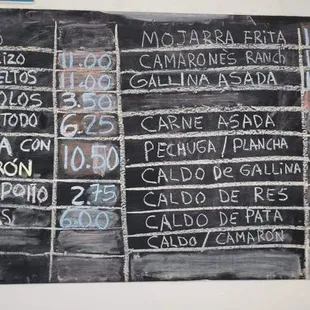 O
IZO 11.00
ELTOS 11.00
OLOS 3.50
TODO 6.25
A CON
RÓN 10.50
POLLO 2.75
S 6.00
MOJARRA FRITA
CAMARONES RANCH
GALLINA ASADA
CARNE ASADA
PECHUGA / PLANCHA
CALDO De GALLINA
CALDO DE RES
CALDO DE PATA
CALDO / CAMARÓN